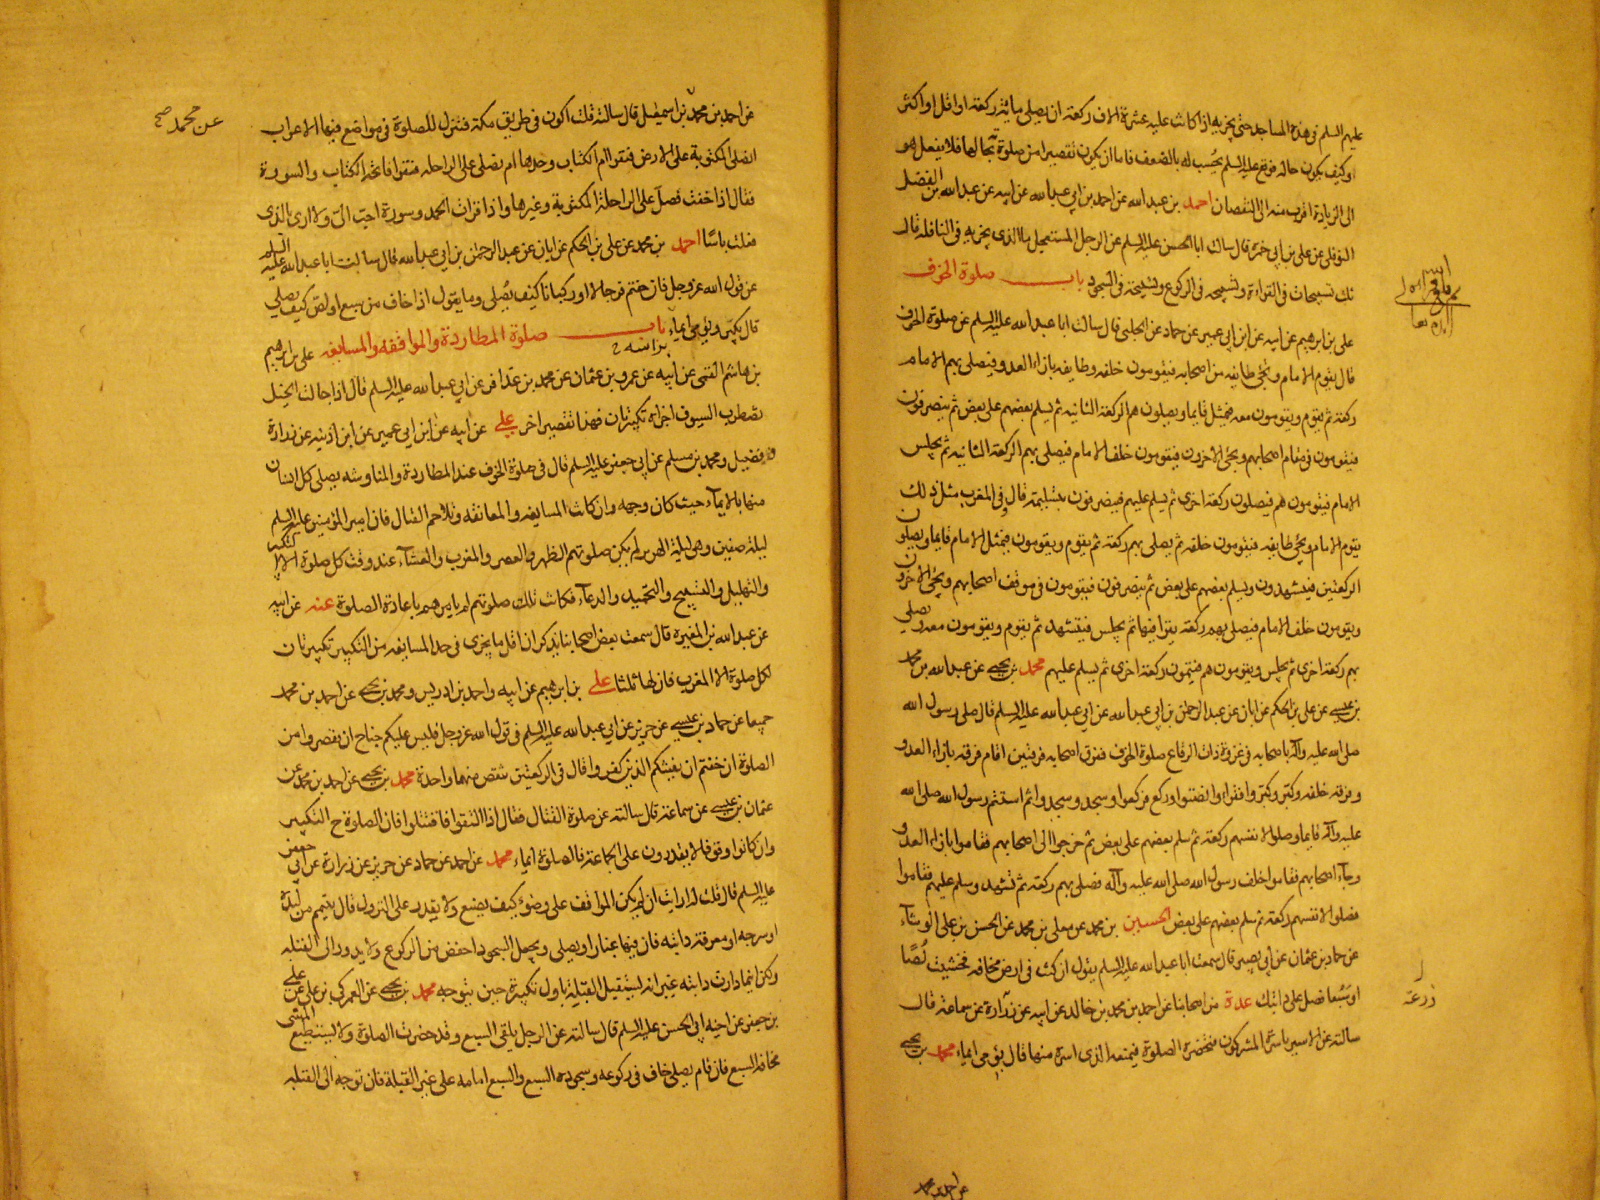 عليهم السلم فى هذه المساجد حتى يجزيه اذا كانت عليه عشرة الاف ركعة ان يصلى مائة ركعة او اقل او اكثر
وكيف يكون حاله فوقع عليه السلم يحسب له بالضعف فاما ان يكون تقصيرا من صلوة بحالها فلا يفعل هو
الى الزيادة اقرب منه الى النقصان احمد بن عبد الله عن احمد بن ابى عبد الله عن ابيه عن عبد الله بن الفضل
النوفلى عن على بن ابى حمزة قال سالت ابا الحسن عليه السلم عن الرجل المستعجل ما الذى يجزيه فى النافلة قال
ثلث تسبيحات فى القراءة وتسبيحة فى الركوع وتسبيحة فى السجود باب صلوة الخوف
على بن ابرهيم عن ابيه عن ابن ابى عمير عن حماد عن الحلبى قال سالت ابا عبد الله عليه السلم عن صلوة الخوف
قال يقوم الامام ويجئ طايفة من اصحابه فيقومون خلفه وطايفة بازاء العدو فيصلى بهم الامام
ركعة ثم يقوم ويقومون معه فيمثل قايما ويصلون هم الركعة الثانية ثم يسلم بعضهم على بعض ثم ينصرفون
فيقومون فى مقام اصحابهم ويجئ الاخرون فيقومون خلف الامام فيصلى بهم الركعة الثانية ثم يجلس
الامام فيقومون هم فيصلون ركعة اخرى ثم يسلم عليهم فينصرفون بتسليمة قال وفى المغرب مثل ذلك
يقوم الامام ويجئ طايفة فيقومون خلفه ثم يصلى بهم ركعة ثم يقوم ويقومون فيمثل الامام قايما ويصلون
الركعتين فيتشهدون ويسلم بعضهم على بعض ثم ينصرفون فيقومون فى موقف اصحابهم ويجئ الاخرون
ويقومون خلف الامام فيصلى بهم ركعة يقرا فيها ثم يجلس فيتشهد ثم يقوم ويقومون معه ويصلى
بهم ركعة اخرى ثم يجلس ويقومون هم فيتمون ركعة اخرى ثم يسلم عليهم محمد بن يحيى عن عبد الله بن محمد
بن عيسى عن على بن الحكم عن ابان عن عبد الرحمن بن ابى عبد الله عن ابى عبد الله عليه السلم قال صلى رسول الله
صلى الله عليه وآله باصحابه فى غزوة ذات الرقاع صلوة الخوف ففرق اصحابه فرقتين اقام فرقة بازاء العدو
وفرقة خلفه وكبر وكبروا فقرا وانصتوا وركع فركعوا وسجد وسجدوا ثم استتم رسول الله صلى الله
عليه وآله قايما وصلوا لانفسهم ركعة ثم سلم بعضهم على بعض ثم خرجوا الى اصحابهم فقاموا بازاء العدو
وجاء اصحابهم فقاموا خلف رسول الله صلى الله عليه وآله فصلى بهم ركعة ثم تشهد وسلم عليهم فقاموا
فصلوا لانفسهم ركعة ثم سلم بعضهم على بعض الحسين بن محمد عن معلى بن محمد عن الحسن بن على الوشاء
عن حماد بن عثمان عن ابى بصير قال سمعت ابا عبد الله عليه السلم يقول ان كنت فى ارض مخافة فخشيت لصا
او سبعا فصل على دابتك عدة من اصحابنا عن احمد بن محمد بن خالد عن ابيه عن زرارة عن سماعة قال
سالته عن الاسير ياسره المشركون فتحضره الصلوة فيمنعه الذى اسره منها قال يؤمى ايماء محمد بن يحيى
زرعة
عن احمد بن محمد
عن محمد صح
عن احمد بن محمد بن اسمعيل قال سالته قلت اكون فى طريق مكة فننزل للصلوة فى مواضع فيها الاعراب
انصلى المكتوبة على الارض فنقرا ام الكتاب وحدها ام نصلى على الراحلة فنقرا فاتحة الكتاب والسورة
فقال اذا خفت فصل على الراحلة المكتوبة وغيرها واذا قرات الحمد وسورة احب الى ولا ارى بالذى
فعلت باسا احمد بن محمد عن على بن الحكم عن ابان عن عبد الرحمن بن ابى عبد الله قال سالت ابا عبد الله عليه السلم
عن قول الله عز وجل فان خفتم فرجالا او ركبانا كيف يصلى وما يقول اذا خاف من سبع او لص كيف يصلى
قال يكبر ويؤمى ايماء براسه باب صلوة المطاردة والمواقفة والمسايفة على بن ابرهيم
بن هاشم القمى عن ابيه عن عمرو بن عثمان عن محمد بن عذافر عن ابى عبد الله عليه السلم قال اذا جالت الخيل
تضطرب السيوف اجزاه تكبيرتان فهذا تقصير اخر على عن ابيه عن ابن ابى عمير عن ابن اذينه عن زرارة
وفضيل ومحمد بن مسلم عن ابى جعفر عليه السلم قال فى صلوة الخوف عند المطاردة والمناوشة يصلى كل انسان
منها بالايماء حيث كان وجهه وان كانت المسايفة والمعانقة وتلاحم القتال فان امير المؤمنين عليه السلم
ليلة صفين وهى ليلة الهرير لم يكن صلوتهم الظهر والعصر والمغرب والعشاء عند وقت كل صلوة الا التكبير
والتهليل والتسبيح والتحميد والدعاء فكانت تلك صلوتهم لم يامرهم باعادة الصلوة عنه عن ابيه
عن عبد الله بن المغيرة قال سمعت بعض اصحابنا يذكر ان اقل ما يجزى فى حد المسايفة من التكبير تكبيرتان
لكل صلوة الا المغرب فان لها ثلثا على بن ابرهيم عن ابيه واحمد بن ادريس ومحمد بن يحيى عن احمد بن محمد
جميعا عن حماد بن عيسى عن حريز عن ابى عبد الله عليه السلم فى قول الله عز وجل فليس عليكم جناح ان تقصروا من
الصلوة ان خفتم ان يفتنكم الذين كفروا قال فى الركعتين تنقص منهما واحدة محمد بن يحيى عن احمد بن محمد عن
عثمان بن عيسى عن سماعة قال سالته عن صلوة القتال فقال اذا التقوا فاقتتلوا فان الصلوة ح التكبير
وان كانوا وقوفا لا يقدرون على الجماعة فالصلوة ايماء محمد عن احمد عن حماد عن حريز عن زرارة عن ابى جعفر
عليه السلم قال قلت له ارايت ان لم يكن المواقف على وضوء كيف يصنع ولا يقدر على النزول قال يتيمم من لبده
او سرجه او معرفة دابته فان فيها غبارا ويصلى ويجعل السجود اخفض من الركوع ولا يدور الى القبلة
ولكن اينما دارت دابته غير انه يستقبل القبلة باول تكبيرة حين يتوجه محمد بن يحيى عن العمركى بن على عن على
بن جعفر عن اخيه ابى الحسن عليه السلم قال سالته عن الرجل يلقى السبع وقد حضرت الصلوة ولا يستطيع المشى
مخافة السبع فان قام يصلى خاف فى ركوعه وسجوده السبع والسبع امامه على غير القبلة فان توجه الى القبلة